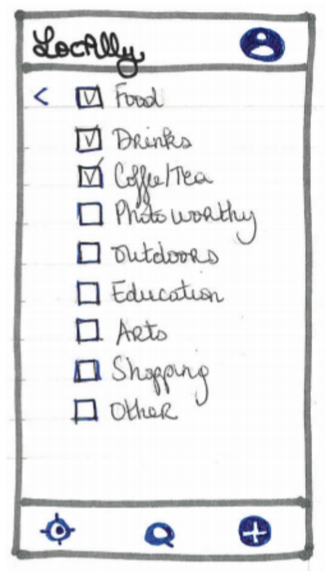 LocAlly
< Food
Drinks
Coffee/Tea
Photoworthy
Outdoors
Education
Arts
Shopping
Other